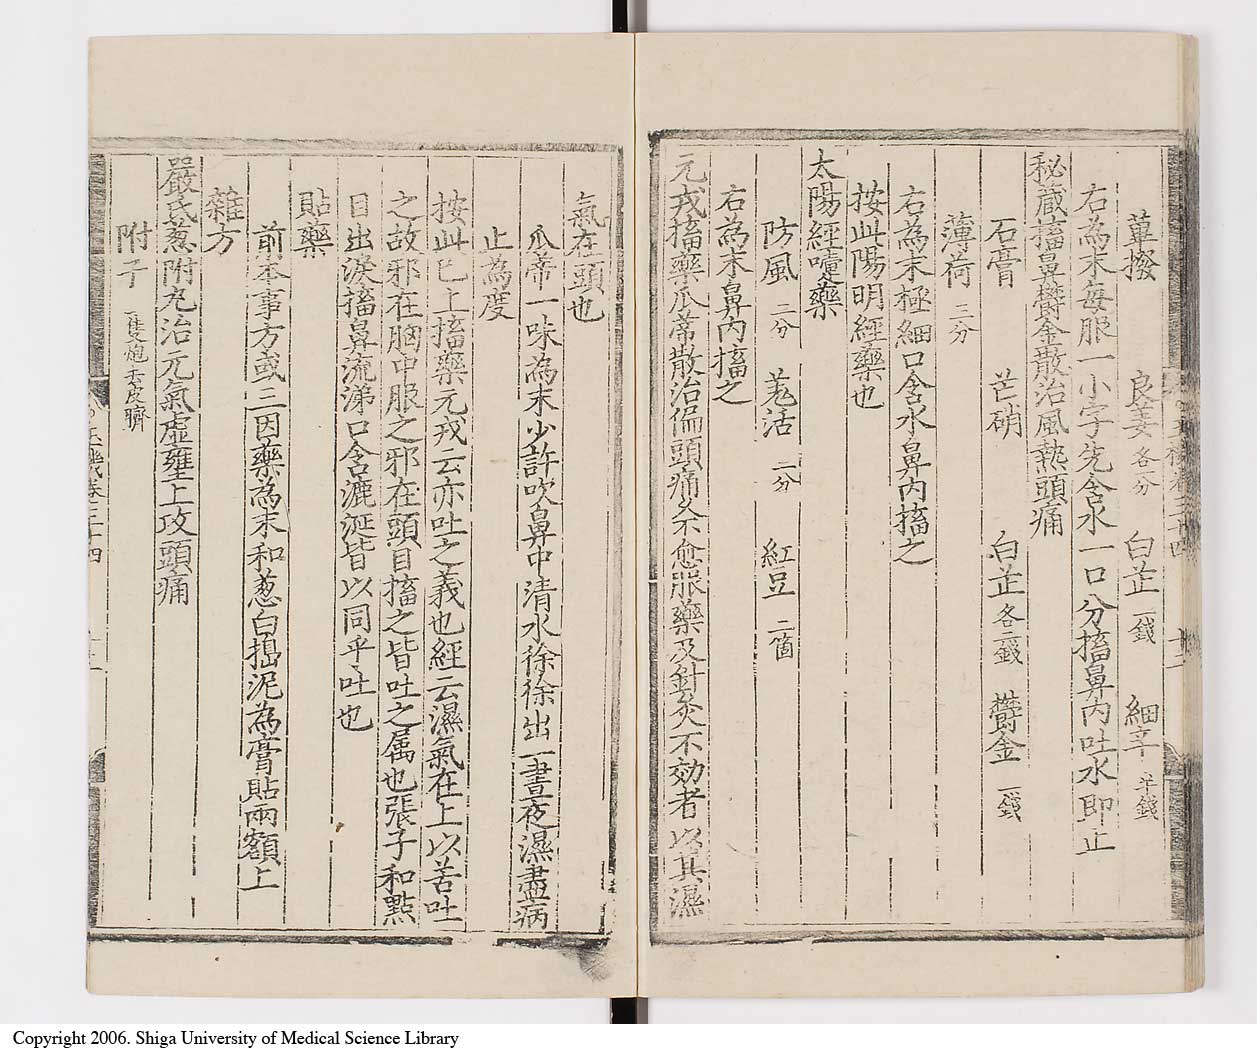 蓽撥 良姜各一分 白芷一錢 細辛半錢
右為末每服一小字先含水一口分搐鼻內吐水即止
秘蔵搐鼻欝金散治風熱頭痛
石膏 芒硝 白芷各二錢 欝金一錢
薄荷三分
右為末極細口含水鼻內搐之
按此陽明經藥也
太陽經嚏藥
防風二分 羗活二分 紅豆二箇
右為末鼻內搐之
元戎搐藥瓜蒂散治偏頭痛久不愈服藥及針灸不効者以其濕
氣在頭也
瓜蒂一味為末少許吹鼻中清水徐徐出一晝夜濕盡病
止為度
按此已上搐藥元戎云亦吐之義也經云濕氣在上以苦吐
之故邪在胸中服之邪在頭目搐之皆吐之属也張子和點
目出淚搐鼻流涕口含漉涎皆以同乎吐也
貼藥
前本事方或三因藥為末和葱白搗泥為膏貼兩額上
雜方
嚴氏葱附丸治元氣虛壅上攻頭痛
附子一隻炮去皮臍
卷三十四
Copyright 2006. Shiga University of Medical Science Library